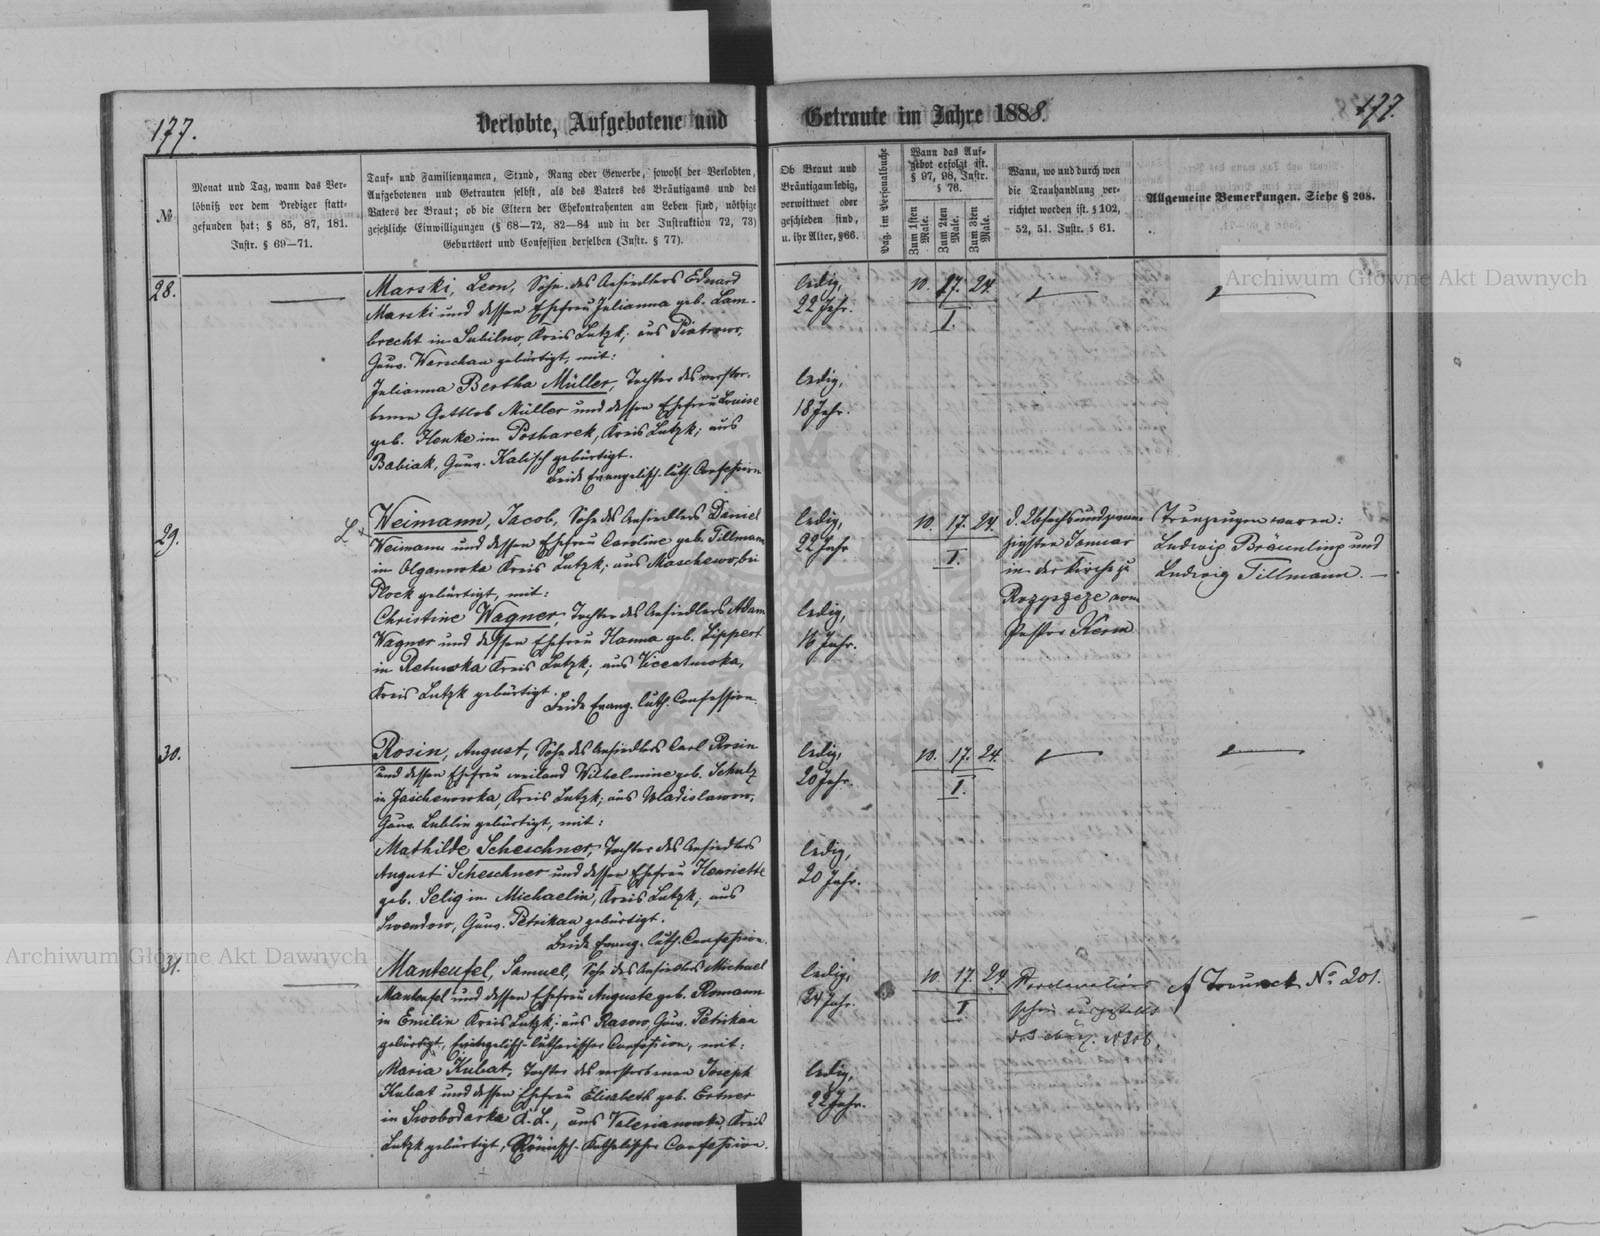 177.
Verlobte, Aufgebotene und
Getraute im Jahre 1888.
177.
№
Monat und Tag, wann das Ver-
löbniß vor dem Prediger statt-
gefunden hat; § 85, 87, 181.
Instr. § 69—71.
Tauf- und Familiennamen, Stand, Rang oder Gewerbe, sowohl der Verlobten,
Aufgebotenen und Getrauten selbst, als des Vaters des Bräutigams und des
Vaters der Braut; ob die Eltern der Ehekontrahenten am Leben sind, nöthige
gesetzliche Einwilligungen (§ 68—72, 82—84 und in der Instruktion 72, 73)
Geburtsort und Confession derselben (Instr. § 77).
Ob Braut und
Bräutigam ledig,
verwittwet oder
geschieden sind,
u. ihr Alter, §66.
Pag. im Personalbuche
Wann das Auf-
gebot erfolgt ist.
§ 97, 98, Instr.
§ 76.
Zum 1sten Male.
Zum 2ten Male.
Zum 3ten Male.
Wann, wo und durch wen
die Trauhandlung ver-
richtet worden ist. § 102,
52, 51. Instr. § 61.
Allgemeine Bemerkungen. Siehe § 208.
28.
Marski, Leon, Sohn des Ansiedlers Eduard
Marski und dessen Ehefrau Julianna geb. Lam-
brecht in Lubilno, Kreis Lutzk; aus Piatrowo,
Guv. Warschau gebürtigt, mit:
Julianna Bertha Müller, Tochter des verstor-
benen Gottlob Müller und dessen Ehefrau Louise
geb. Henke in Posharek, Kreis Lutzk; aus
Babiak, Guv. Kalisch gebürtigt.
Beide Evangelisch-luth. Confession
ledig,
22 Jahr.
ledig,
18 Jahr.
10. 17. 24.
I.
29.
Weimann, Jacob, Sohn des Ansiedlers Daniel
Weimann und dessen Ehefrau Caroline geb. Tillmann
in Olganowka Kreis Lutzk; aus Maschewo, bei
Plock gebürtigt, mit:
Christine Wagner, Tochter des Ansiedlers Adam
Wagner und dessen Ehefrau Hanna geb. Lippert
in Kreis Lutzk; aus
Kreis Lutzk gebürtigt.
Beide Evang. luth. Confession.
ledig,
22 Jahr
ledig,
16 Jahr.
10. 17. 24.
I.
d. Achtundzwan-
zigsten Januar
in der Kirche zu
Rozyszcze vom
Pastor Kerm
Trauzeugen waren:
Ludwig Bräunling und
Ludwig Tillmann.
30.
Rosin, August, Sohn des Ansiedlers Carl Rosin
und dessen Ehefrau weiland Wilhelmine geb. Schulz
in Jaschenowka, Kreis Lutzk; aus Wladislawow,
Guv. Lublin gebürtigt, mit:
Mathilde Scheschner, Tochter des Ansiedlers
August Scheschner und dessen Ehefrau Henriette
geb. Selig in Michaelin, Kreis Lutzk; aus
Swendow, Guv. Petrikau gebürtigt.
Beide Evang. luth. Confession.
ledig,
20 Jahr.
ledig,
20 Jahr.
10. 17. 24.
I.
31.
Manteufel, Samuel, Sohn des Ansiedlers Michael
Manteufel und dessen Ehefrau Auguste geb. Romann
in Emilin Kreis Lutzk; aus Rasowo, Guv. Petrikau
gebürtigt, Evangelisch-lutherischer Confession, mit:
Maria Kubat, Tochter des verstorbenen Joseph
Kubat und dessen Ehefrau Elisabeth geb. Ertner
in Swobodarka K. L., aus Valerianowka, Kreis
Lutzk gebürtigt, Römisch-Katholischer Confession.
ledig,
24 Jahr.
ledig,
22 Jahr.
10. 17. 24.
I.
Proclamations
schein ausgestellt
No 201.
Archiwum Główne Akt Dawnych
Archiwum Główne Akt Dawnych